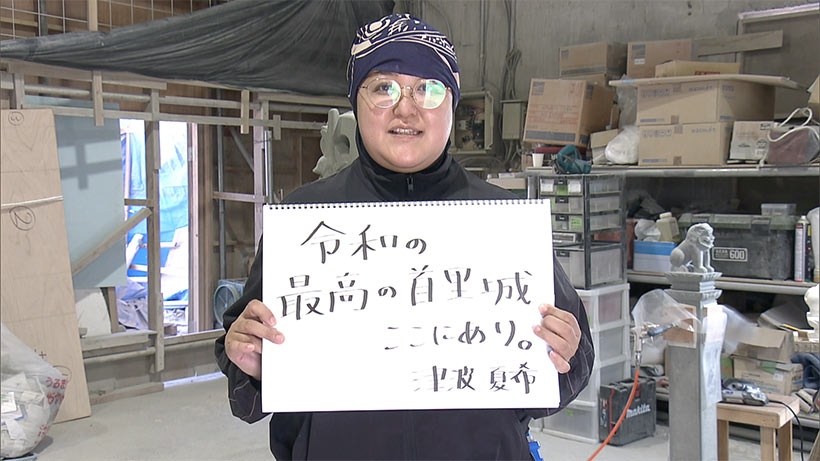 令和の
最高の首里城
ここにあり。
津波 夏希
600
makita
うるま